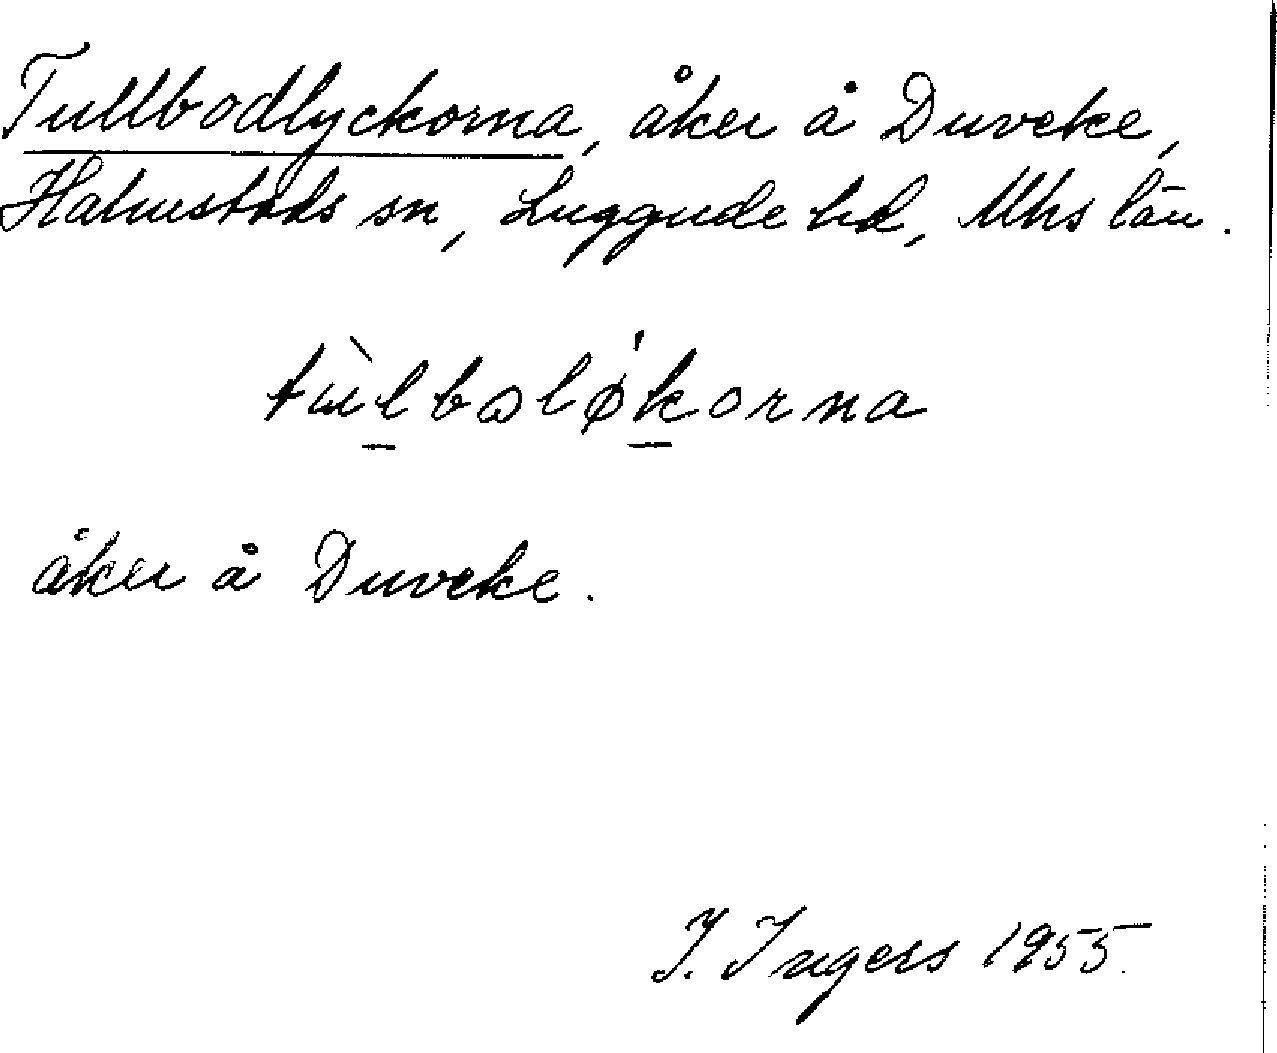 Tullbodlyckorna, åker å Duveke,
Halmstads sn, Luggude hd, Mhs län.
tùlbɷlǿkorna
åker å Duveke.
I. Ingers 1955.